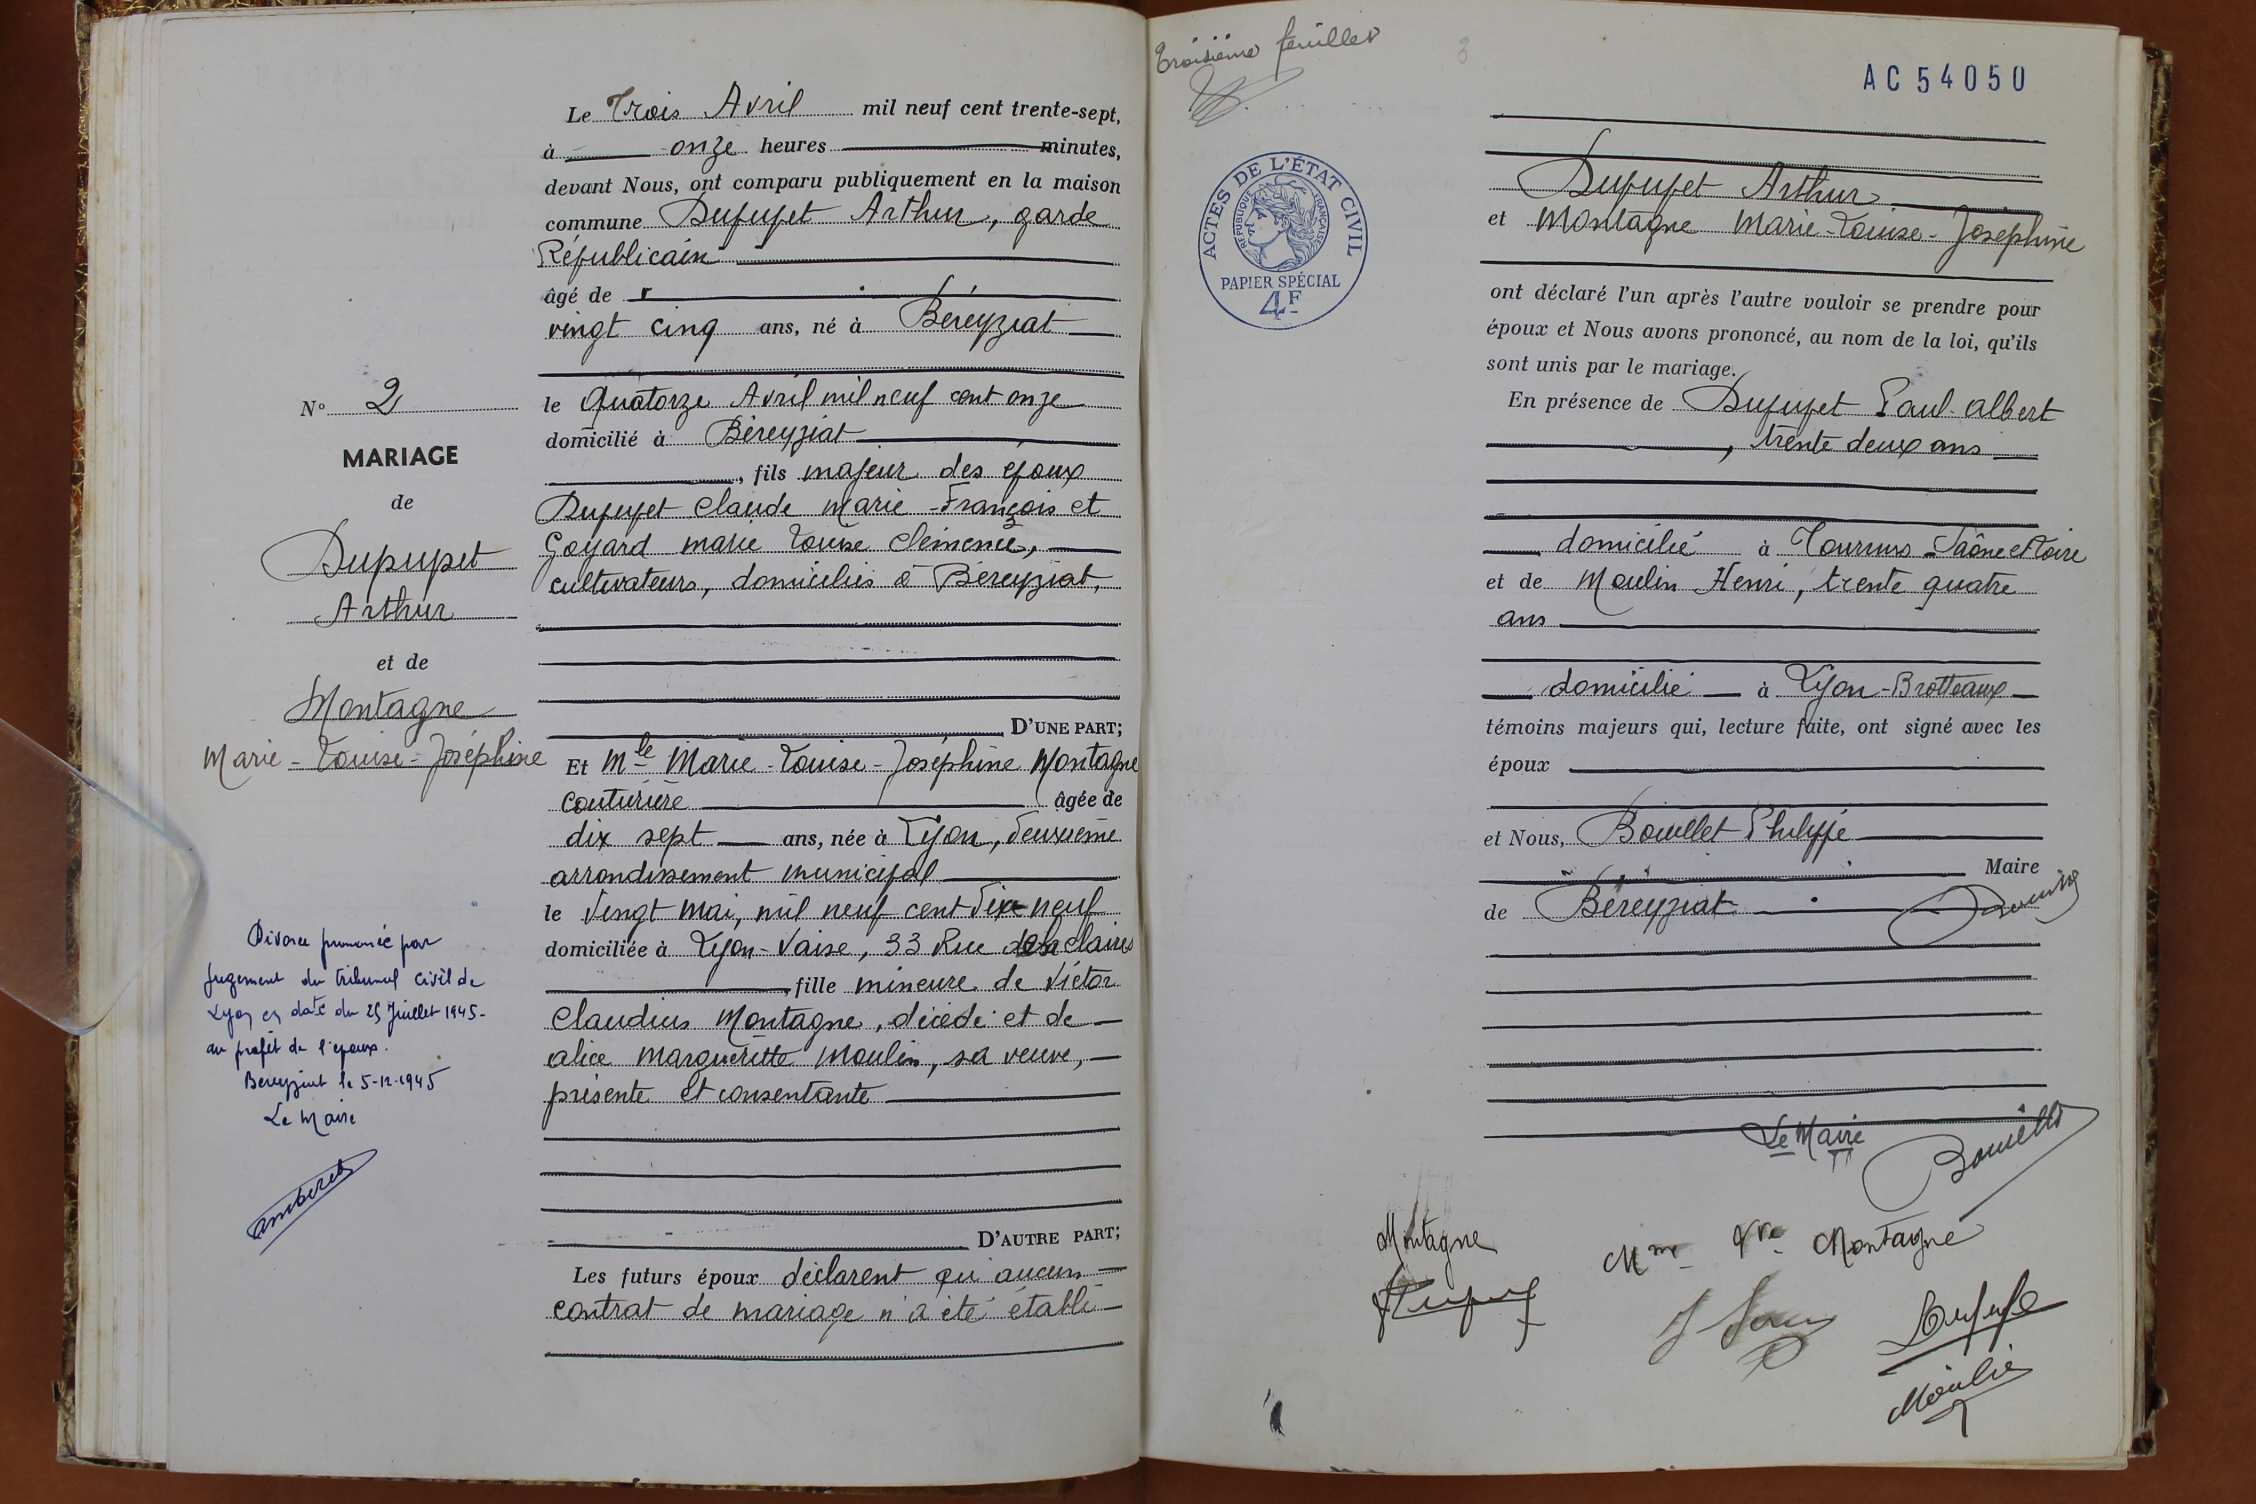 Le Trois Avril mil neuf cent trente-sept,
à onze heures minutes,
devant Nous, ont comparu publiquement en la maison
commune Dupupet Arthur, garde
Républicain
âgé de
vingt cinq ans, né à Béreyziat
le Quatorze Avril mil neuf cent onze
domicilié à Béreyziat
, fils majeur des époux
Dupupet Claude Marie-François et
Goyard Marie Louise Clémence,
cultivateurs, domiciliés à Béreyziat,
D'UNE PART;
Et Mle Marie-Louise-Joséphine Montagne
couturière âgée de
dix sept ans, née à Lyon, deuxième
arrondissement municipal
le vingt mai, mil neuf cent dix neuf
domiciliée à Lyon-Vaise, 33 Rue de la Claires
, fille mineure de Victor
Claudius Montagne, décédé et de
alice Margueritte Moulin, sa veuve,
présente et consentante
D'AUTRE PART;
Les futurs époux déclarent qu'aucun
contrat de mariage n'a été établi
N° 2
MARIAGE
de
Dupupet
Arthur
et de
Montagne
Marie-Louise-Joséphine
Divorce prononcé par
jugement du tribunal civil de
Lyon en date du 25 Juillet 1945-
au profit de l'époux.
Béreyziat le 5-12-1945
Le Maire
Troisième feuillet
3
AC 54050
ACTES DE L'ÉTAT CIVIL
RÉPUBLIQUE FRANÇAISE
PAPIER SPÉCIAL
4F
Dupupet Arthur
et Montagne Marie-Louise-Joséphine
ont déclaré l'un après l'autre vouloir se prendre pour
époux et Nous avons prononcé, au nom de la loi, qu'ils
sont unis par le mariage.
En présence de Dupupet Paul-Albert
, trente deux ans
domicilié à Tournus Saône et Loire
et de Moulin Henri, trente quatre
ans
domicilié à Lyon-Brotteaux
témoins majeurs qui, lecture faite, ont signé avec les
époux
et Nous, Bouillet Philippe
Maire
de Béreyziat
Le Maire
Bouillet
Montagne
Mme Vve Montagné
Dupupet
Moulin